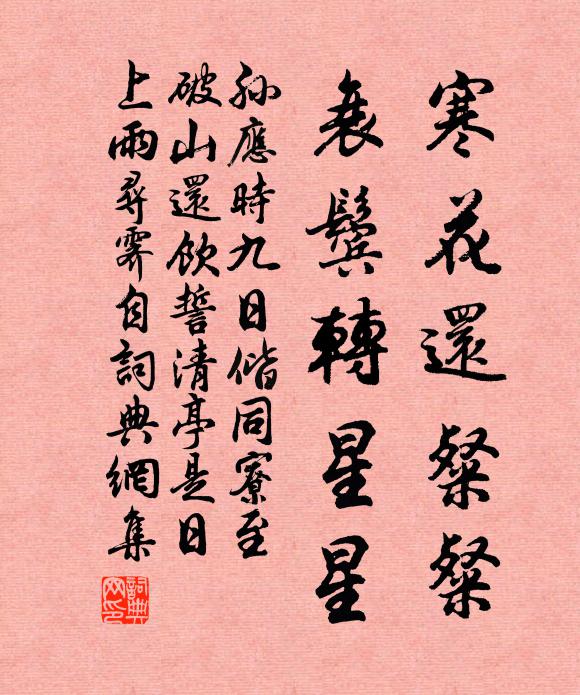 寒花還粲粲
衰鬢轉星星
孙應時九日偕同寮至
破山還飲誓清亭是日
上雨尋霽自詞典網集
詞典网印